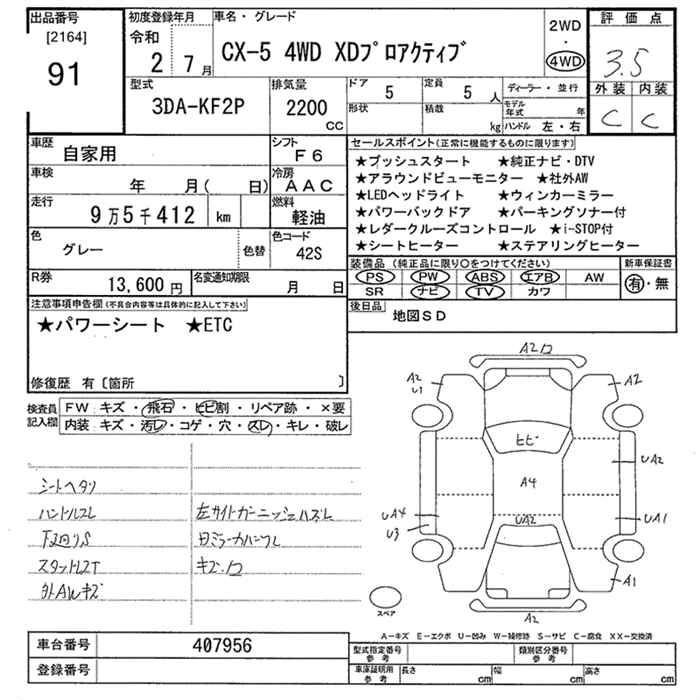 出品番号
[2164]
91
初度登録年月
令和
2 7月
車名・グレード
CX-5 4WD XDプロアクティブ
2WD
・
4WD
評価点
3.5
外装 内装
C C
型式
3DA-KF2P
排気量
2200
CC
ドア
5
定員
5 人
形状
積載
kg
ディーラー・並行
モデル年式 年
ハンドル 左・右
車歴
自家用
シフト
F6
車検
年 月( 日)
冷房
AAC
走行
9万5千412 km
燃料
軽油
色
グレー
色替
色コード
42S
R券
13,600円
名変通知期限
月 日
セールスポイント(正常に機能するものに限ります)
★プッシュスタート ★純正ナビ・DTV
★アラウンドビューモニター ★社外AW
★LEDヘッドライト ★ウィンカーミラー
★パワーバックドア ★パーキングソナー付
★レダークルーズコントロール ★i-STOP付
★シートヒーター ★ステアリングヒーター
装備品(純正品に限り○をつけてください)
PS PW ABS エアB AW
SR ナビ TV カワ
新車保証書
有・無
後日品
地図SD
注意事項申告欄(不具合内容等は具体的に記入して下さい)
★パワーシート ★ETC
修復歴 有〔箇所 〕
検査員記入欄
FW: キズ・飛石・ヒビ割・リペア跡・×要
内装: キズ・汚レ・コゲ・穴・スレ・キレ・破レ
シートヘタリ
ハンドルスレ
下廻りS
スタッドレスT
外AWキズ
左サイドガーニッシュハズレ
日ミラーカバーフレ
キズ・ワ
A2ワ
A2
U1
A2
ヒビ
A4
UA2
UA2
UA4
U3
UA1
A1
A2
スペア
A－キズ E－エクボ U－凹み W－補修跡 S－サビ C－腐食 XX－交換済
車台番号
407956
登録番号
型式指定番号
参考
類別区分番号
参考
車庫証明用
参考
長さ cm
幅 cm
高さ cm